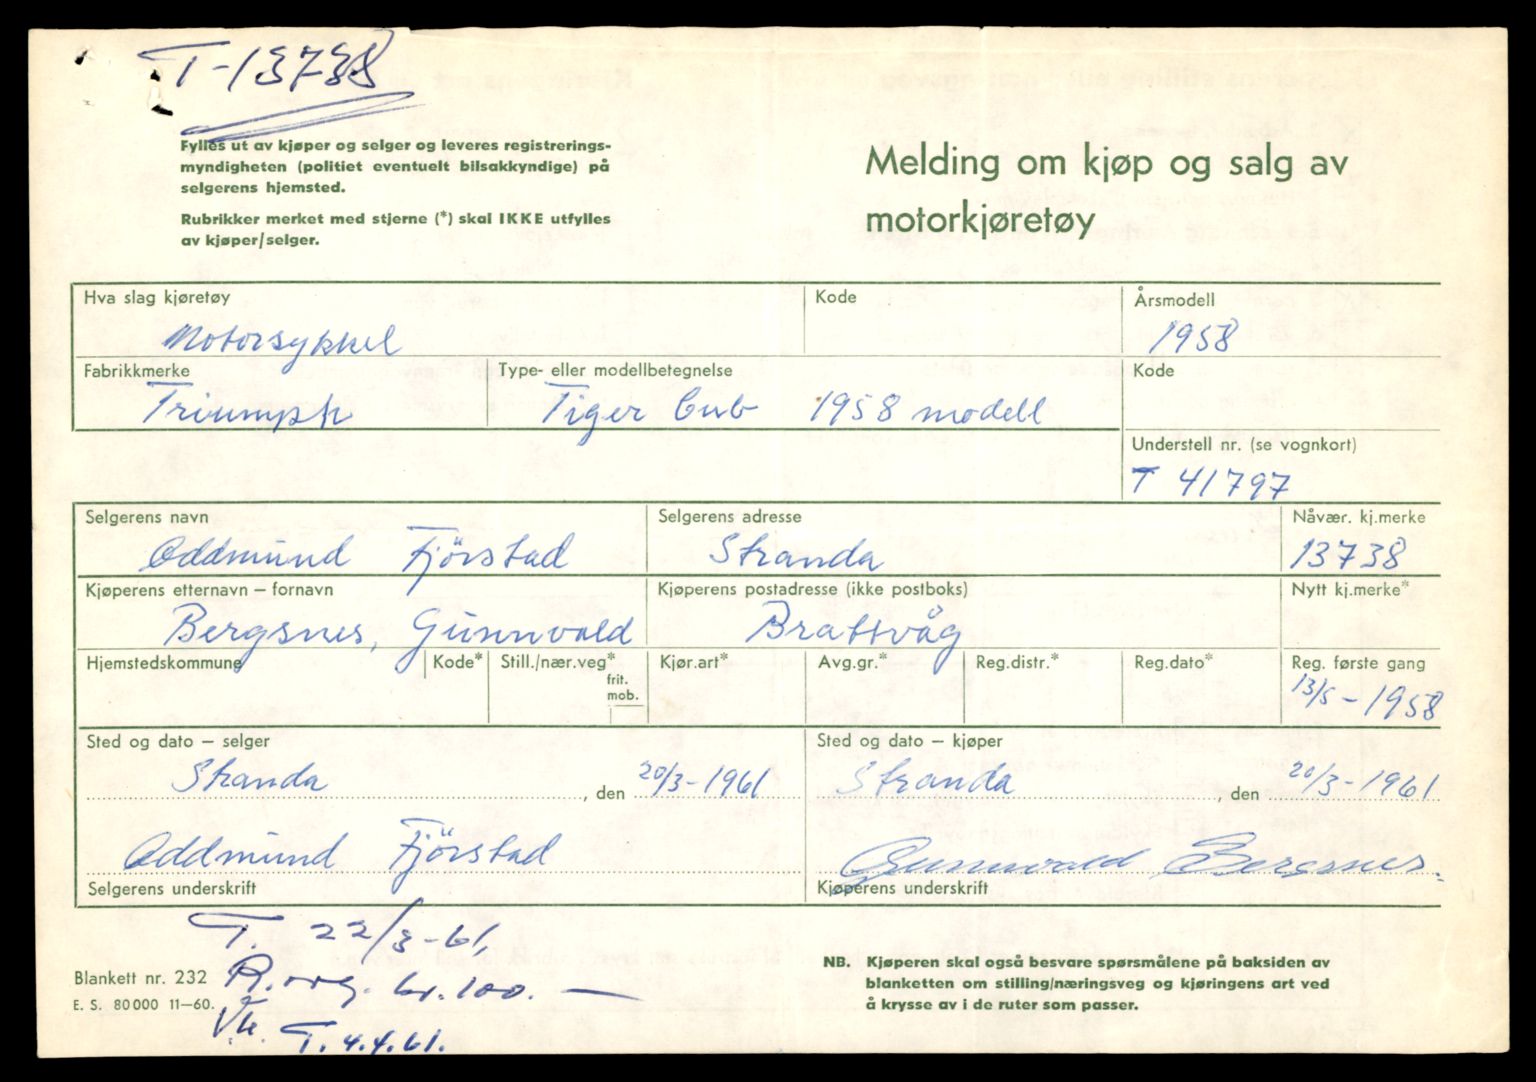 T-13738
Fylles ut av kjøper og selger og leveres registrerings-
myndigheten (politiet eventuelt bilsakkyndige) på
selgerens hjemsted.
Rubrikker merket med stjerne (*) skal IKKE utfylles
av kjøper/selger.
Melding om kjøp og salg av
motorkjøretøy
Hva slag kjøretøy
Kode
Årsmodell
Motorsykkel
1958
Fabrikkmerke
Type- eller modellbetegnelse
Kode
Triumph
Tiger Cub 1958 modell
Understell nr. (se vognkort)
T 41797
Selgerens navn
Selgerens adresse
Nåvær. kj.merke
Oddmund Fjörstad
Stranda
13738
Kjøperens etternavn – fornavn
Kjøperens postadresse (ikke postboks)
Nytt kj.merke*
Bergsnes, Gunnvald
Brattvåg
Hjemstedskommune
Kode*
Still./nær.veg*
frit.
mob.
Kjør.art*
Avg.gr.*
Reg.distr.*
Reg.dato*
Reg. første gang
13/5-1958
Sted og dato – selger
Sted og dato – kjøper
Stranda, den 20/3-1961
Stranda, den 20/3-1961
Oddmund Fjörstad
Gunnvald Bergsnes.
Selgerens underskrift
Kjøperens underskrift
T. 22/3-61.
Blankett nr. 232
E. S. 80000 11—60.
kr. 100. —
T. 4.4.61.
NB. Kjøperen skal også besvare spørsmålene på baksiden av
blanketten om stilling/næringsveg og kjøringens art ved
å krysse av i de ruter som passer.